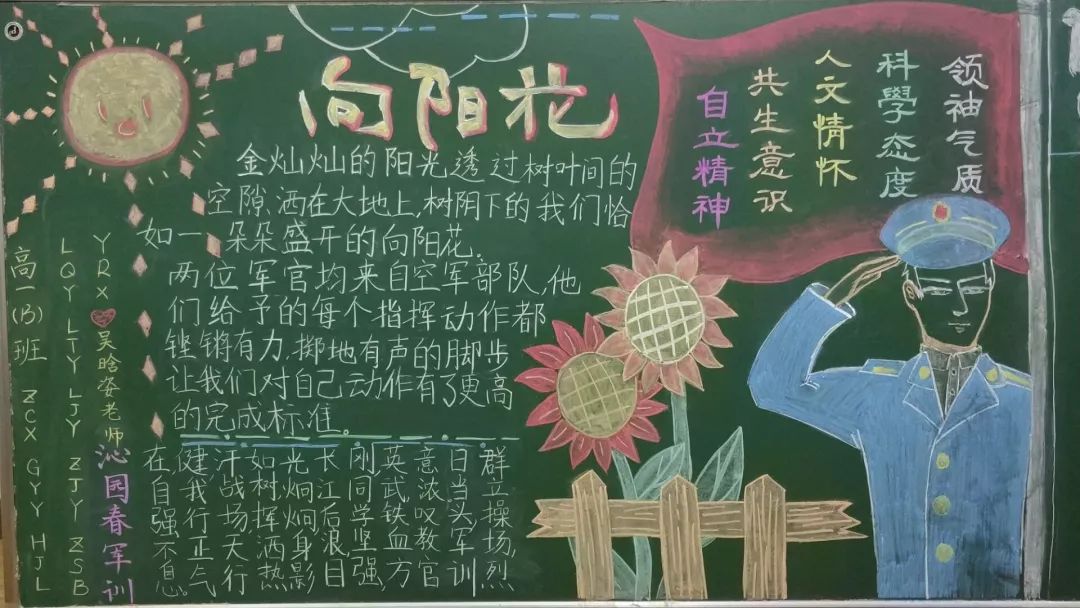 向阳花
金灿灿的阳光透过树叶间的
空隙,洒在大地上,树阴下的我们恰
如一朵朵盛开的向阳花.
两位军官均来自空军部队,他
们给予的每个指挥动作都
铿锵有力,掷地有声的脚步
让我们对自己动作有了更高
的完成标准。
领袖气质
科學态度
人文情怀
共生意识
自立精神
沁园春军训
群立操场,烈
日当头军训
意浓叹教官
英武,铁血方
刚同学坚强,
长江后浪,目
光炯炯,身影
如树挥洒热
汗战场天行
健我行正气
在自强不息。
高一(B)班 ZCX GYY HJL
LQY LTY LJY ZJY ZSB
YRX 吴晗姿老师